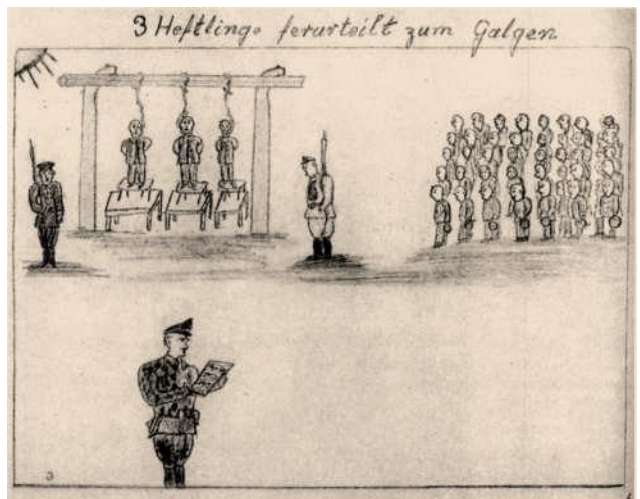 3 Heftlinge ferurteilt zum Galgen
3